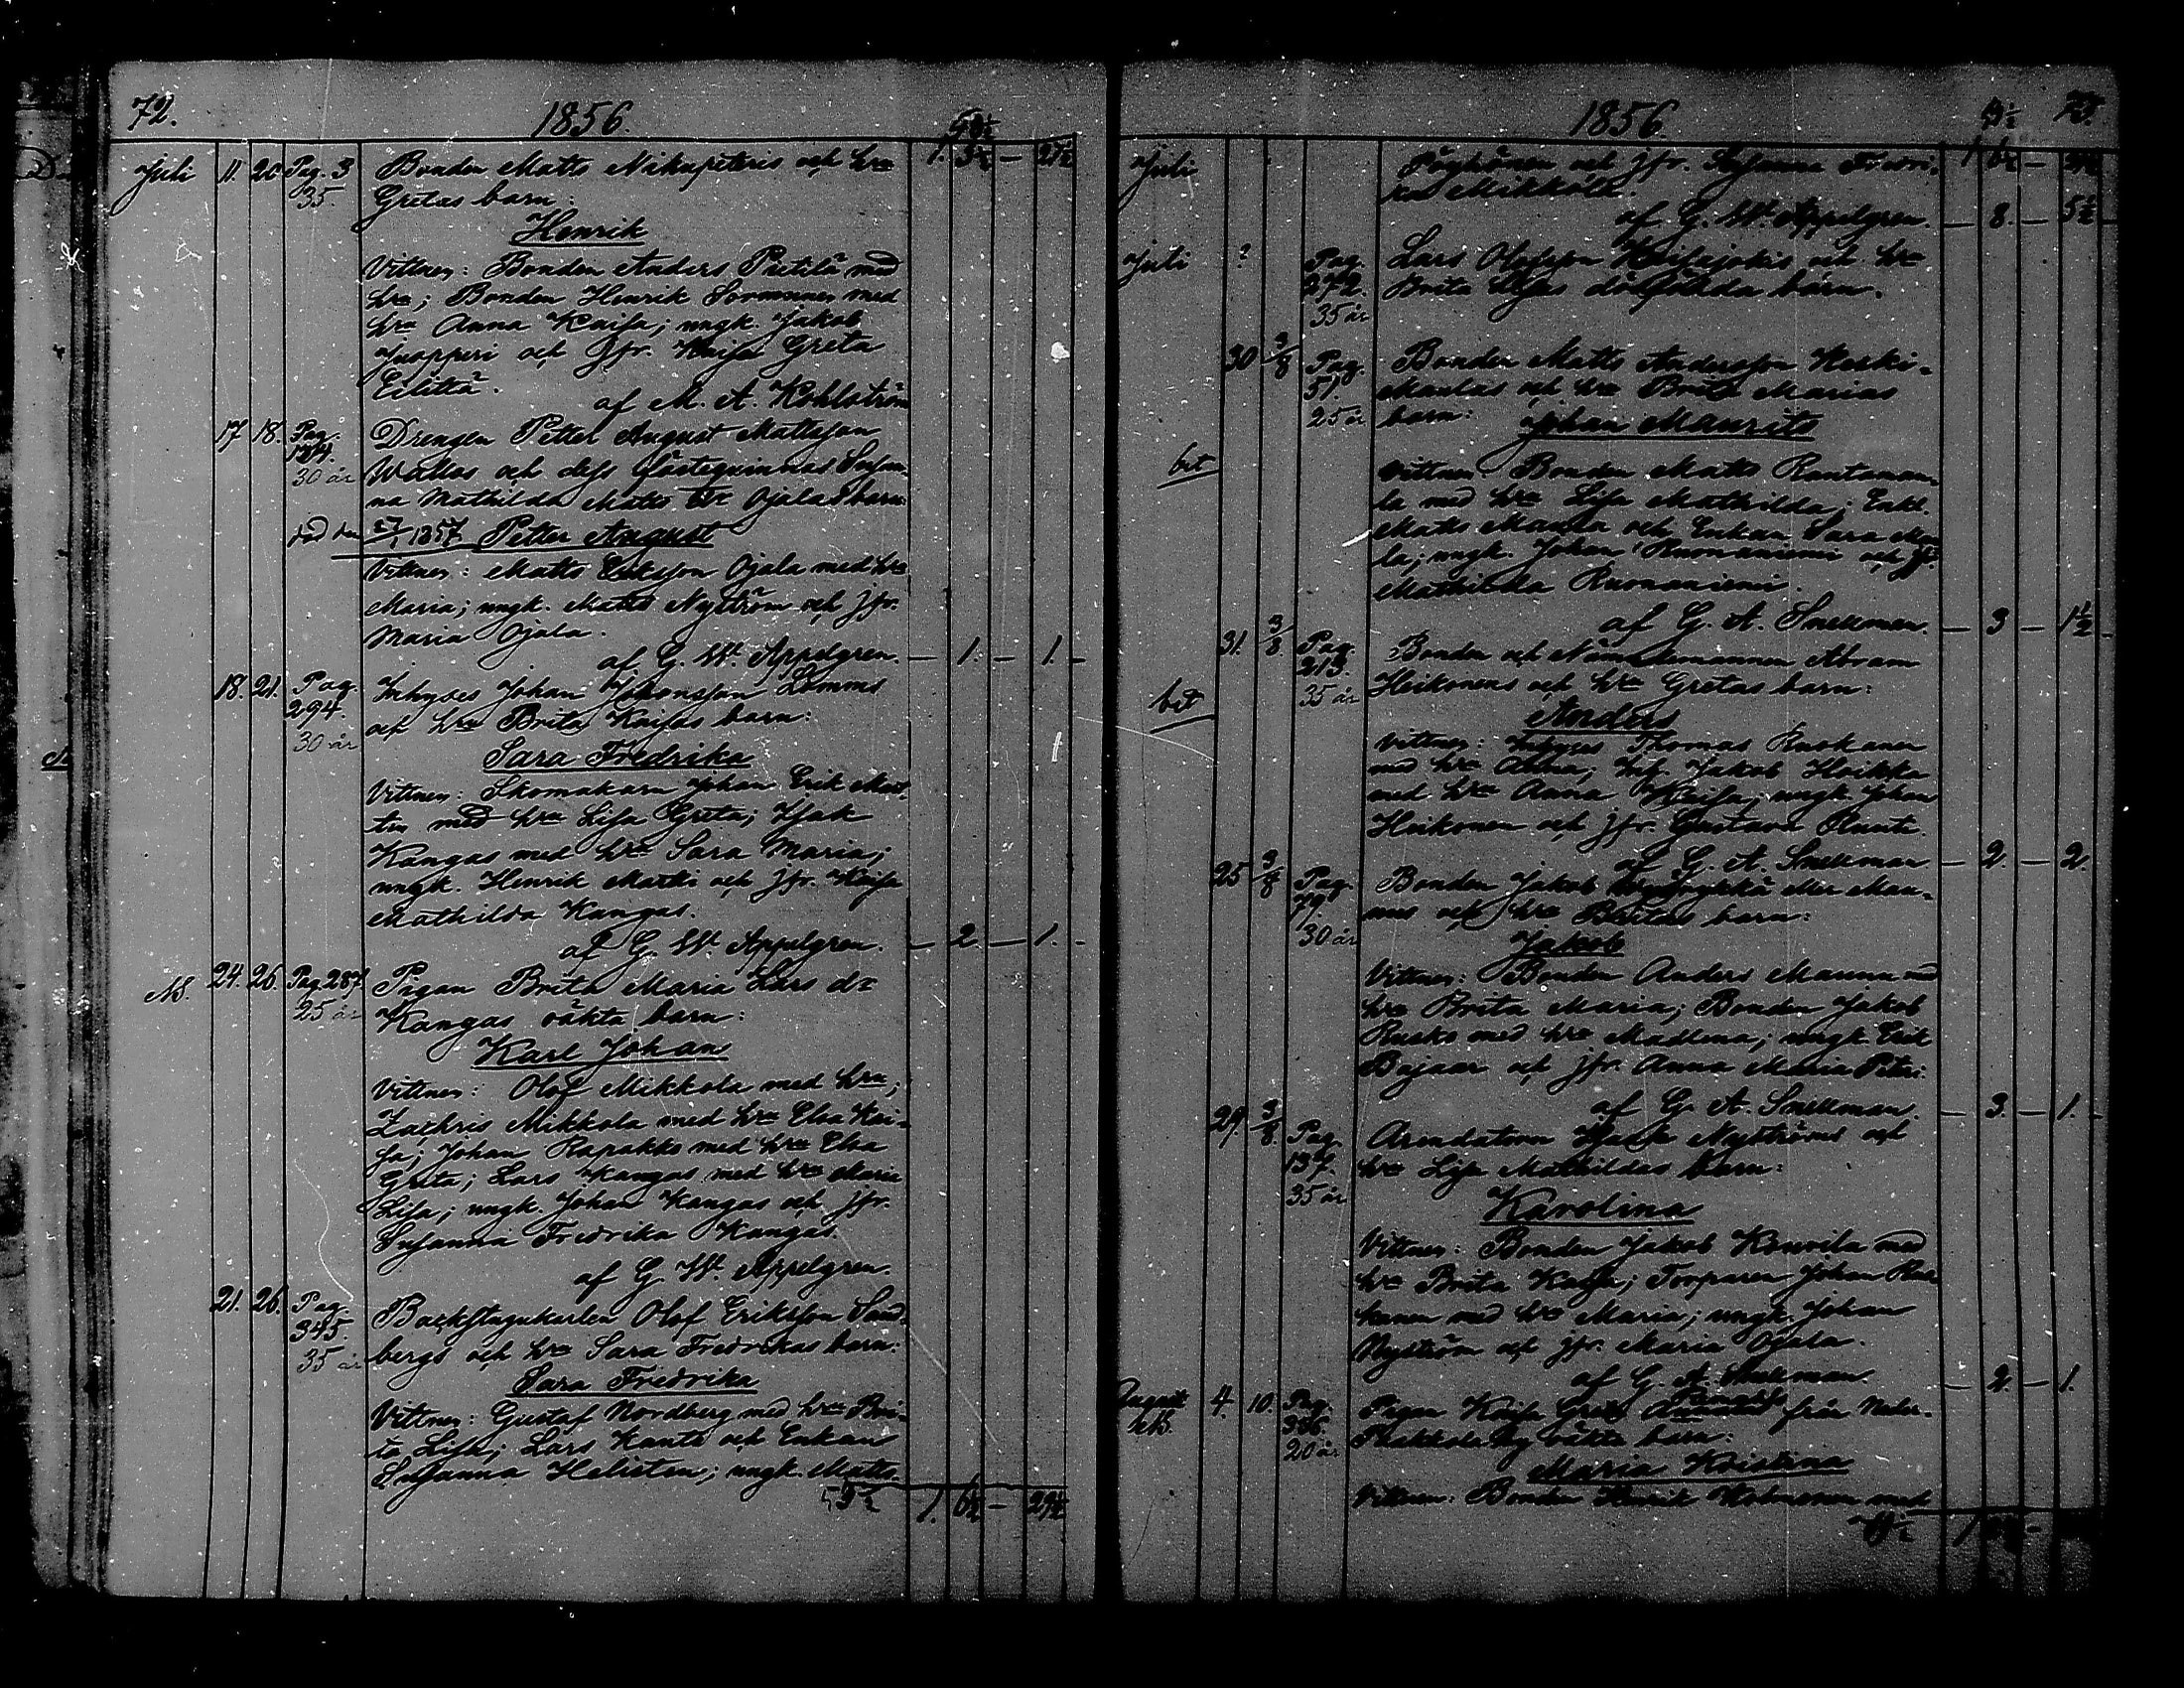 72.
1856.
Juli 11. 20. Pag. 3 Bonden Matts och hru 1. 3½ — 27½
35. Gretas barn:
Henrik
Vittnen: Bonden Anders Pietilä med
hru; Bonden Henrik Sormunen med
hru Anna Kaisa; ungk. Jakob
Juopperi och jfr. Kaisa Greta
Eilittä.
af M. A. Kohlström
17 18. Pag. Drengen Petter August Mattsson
184. och dess fästeqvinnas Susan-
30 år na Mathilda Matts dr Ojalas barn
död den 1857 Petter August
Vittnen: Matts Eriksson Ojala med hru
Maria; ungk. Matts Nyström och jfr.
Maria Ojala.
af G. W. Appelgren. — 1. — 1. —
18. 21. Pag. Inhyses Johan Johansson Lomms
294. och hru Brita Kaisas barn:
30 år
Sara Fredrika
Vittnen: Skomakarn Johan Erik Mat-
tin med hru Lisa Greta; Isak
Kangas med hru Sara Maria;
ungk. Henrik Matti och jfr. Kaisa
Mathilda Kangas.
af G. W. Appelgren. — 2. — 1. —
24. 26. Pag. 287. Pigan Brita Maria Lars dr
25 år Kangas oäkta barn:
Karl Johan
Vittnen: Olof Mikkola med hru;
Zachris Mikkola med hru Elsa Kai-
sa; Johan Rapakko med hru Elsa
Greta; Lars Kangas med hru Maria
Lisa; ungk. Johan Kangas och jfr.
Susanna Fredrika Kangas.
af G. W. Appelgren.
21. 26. Pag. Backstugukarlen Olof Eriksson Sand-
345. bergs och hru Sara Fredrikas barn:
35 år
Sara Fredrika
Vittnen: Gustaf Nordberg med hru Bri-
ta Lisa; Lars Kanto och Enkan
Susanna Helisten; ungk. Matts
1. 6½ — 29½
1856
Juli Pöyhönen och jfr. Susanna Fredri-
ka Mikkola.
af G. W. Appelgren. — 8. — 5½ —
Juli ? Pag. Lars Olofsson och hru
272. Brita Lisas dödfödda barn.
35 år
30 3/8 Pag. Bonden Matts Andersson Keski-
51. Maulas och hru Brita Marias
25 år barn: Johan Maurits
bet Vittnen: Bonden Matts Rantamau-
la med hru Lisa Mathilda; Enkl.
Matts Maula och Enkan Sara Mau-
la; ungk. Johan Ruonaniemi och jfr.
Mathilda Ruonaniemi.
af G. A. Snellman. — 3 — 1½ —
31. 3/8. Pag. Bonden och Nämndemannen Abram
213. Heikonens och hru Gretas barn:
35 år
bet Anders
Vittnen: Inhyses Thomas Ruokanen
med hru Anna; Inh. Jakob Hoikka
med hru Anna Kaisa; ungk. Johan
Heikonen och jfr. Gustava Runti.
af G. A. Snellman — 2. — 2.
25 3/8 Pag. Bonden Jakob eller Man-
79. nus och hru Britas barn:
30 år
Jakob
Vittnen: Bonden Anders Mannu med
hru Brita Maria; Bonden Jakob
Rusko med hru Madlena; ungk. Erik
Bajaar och jfr. Anna Maria Peteri.
af G. A. Snellman. — 3. — 1. —
29. 3/8 Pag. Arendatorn Isack Nyströms och
137. hru Lisa Mathildas barn:
35 år
Karolina
Vittnen: Bonden Jakob Kourila med
hru Brita Kaisa; Torparen Johan Ruo-
kanen med hru Maria; ungk. Johan
Nyström och jfr. Maria Ojala.
af G. A. Snellman. — 2. — 1.
August 4. 10. Pag. Pigan Kaisa Greta från Neder-
336. oäkta barn:
20 år
Maria Kristina
Vittnen: Bonden Henrik med